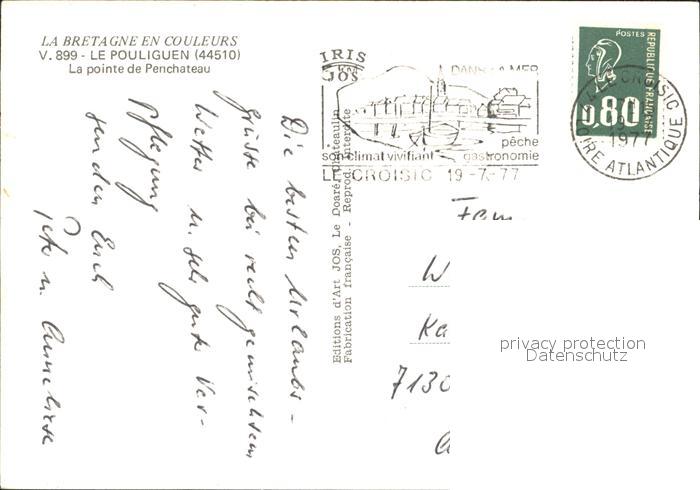 LA BRETAGNE EN COULEURS
V. 899 - LE POULIGUEN (44510)
La pointe de Penchateau
IRIS
JOS
DANS LA MER
son climat vivifiant
pêche
gastronomie
LE CROISIC 19-7-77
POSTES
REPUBLIQUE FRANÇAISE
0.80
LE CROISIC
1977
LOIRE ATLANTIQUE
Editions d'Art JOS, Le Doaré, Châteaulin
Fabrication française - Reprod. interdite
Die besten Urlaubs-
grüsse bei recht gemischtem
Wetter u. sehr guter Ver-
pflegung
senden Euch
u. Anneliese
Fam
W
Ka
7130
privacy protection
Datenschutz